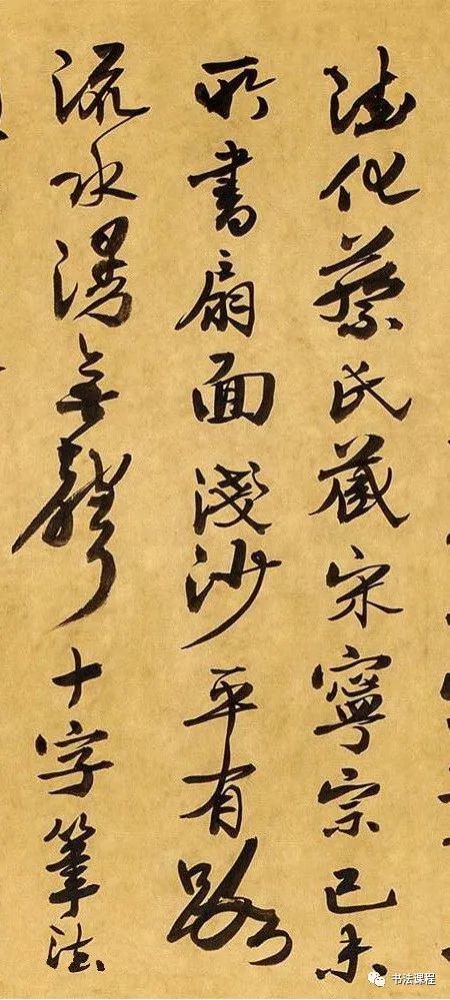 德化蔡氏藏宋寧宗己未
所書扇面淺沙平有路
流水漫無聲十字筆法
书法课程